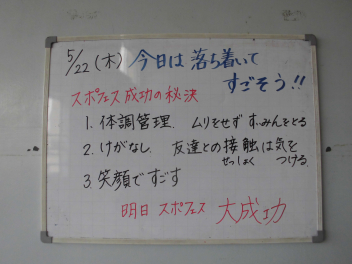 5/22(木) 今日は落ち着いて
すごそう!!
スポフェス成功の秘決
1. 体調管理. ムリをせず すいみんをとる
2. けがなし. 友達との接触は気を
せっしょく つける
3. 笑顔ですごす
明日 スポフェス 大成功